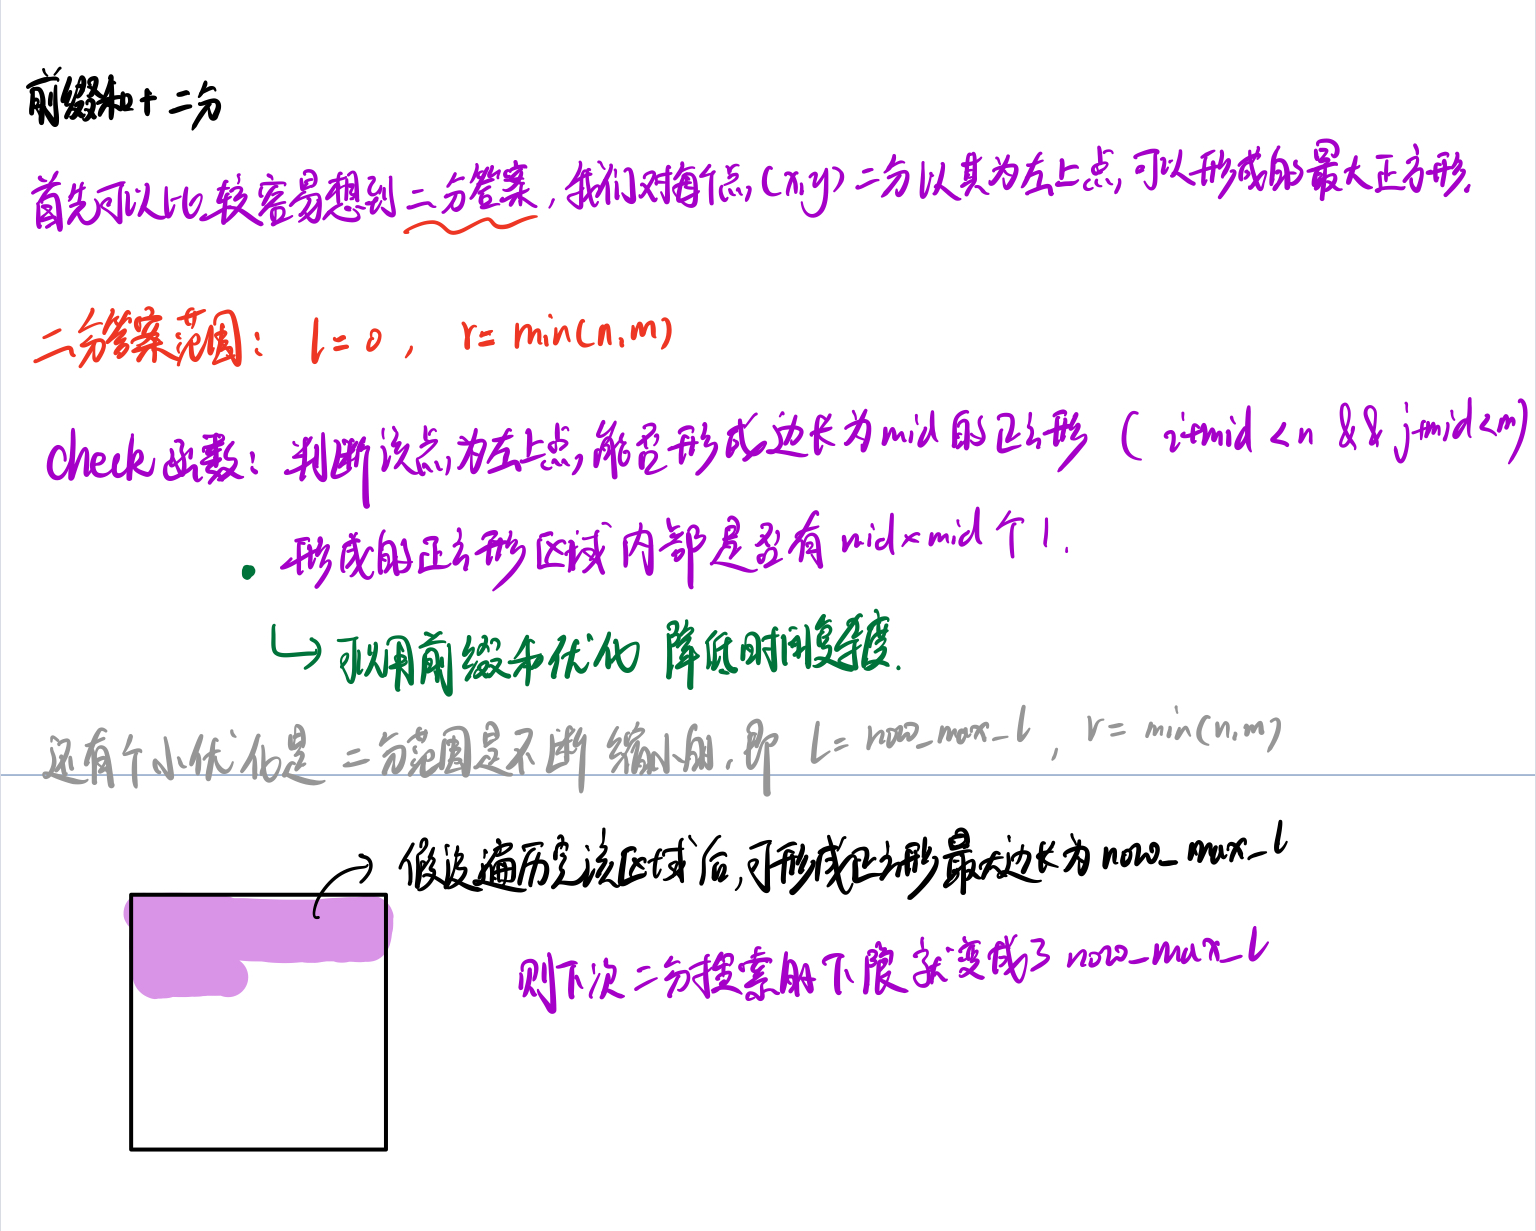 前缀和+二分
首先可以比较容易想到二分答案，我们对每个点(x,y)二分以其为左上点，可以形成的最大正方形.
二分答案范围： l=0， r=min(n,m)
check函数：判断该点为左上点，能否形成边长为mid的正方形 (i+mid<n && j+mid<m)
形成的正方形区域内部是否有mid×mid个1.
可以用前缀和优化 降低时间复杂度.
还有个小优化是 二分范围是不断缩小的，即 l=now_max_l, r=min(n,m)
假设遍历完该区域后，可形成正方形最大边长为now_max_l
则下次二分搜索的下限就变成了now_max_l